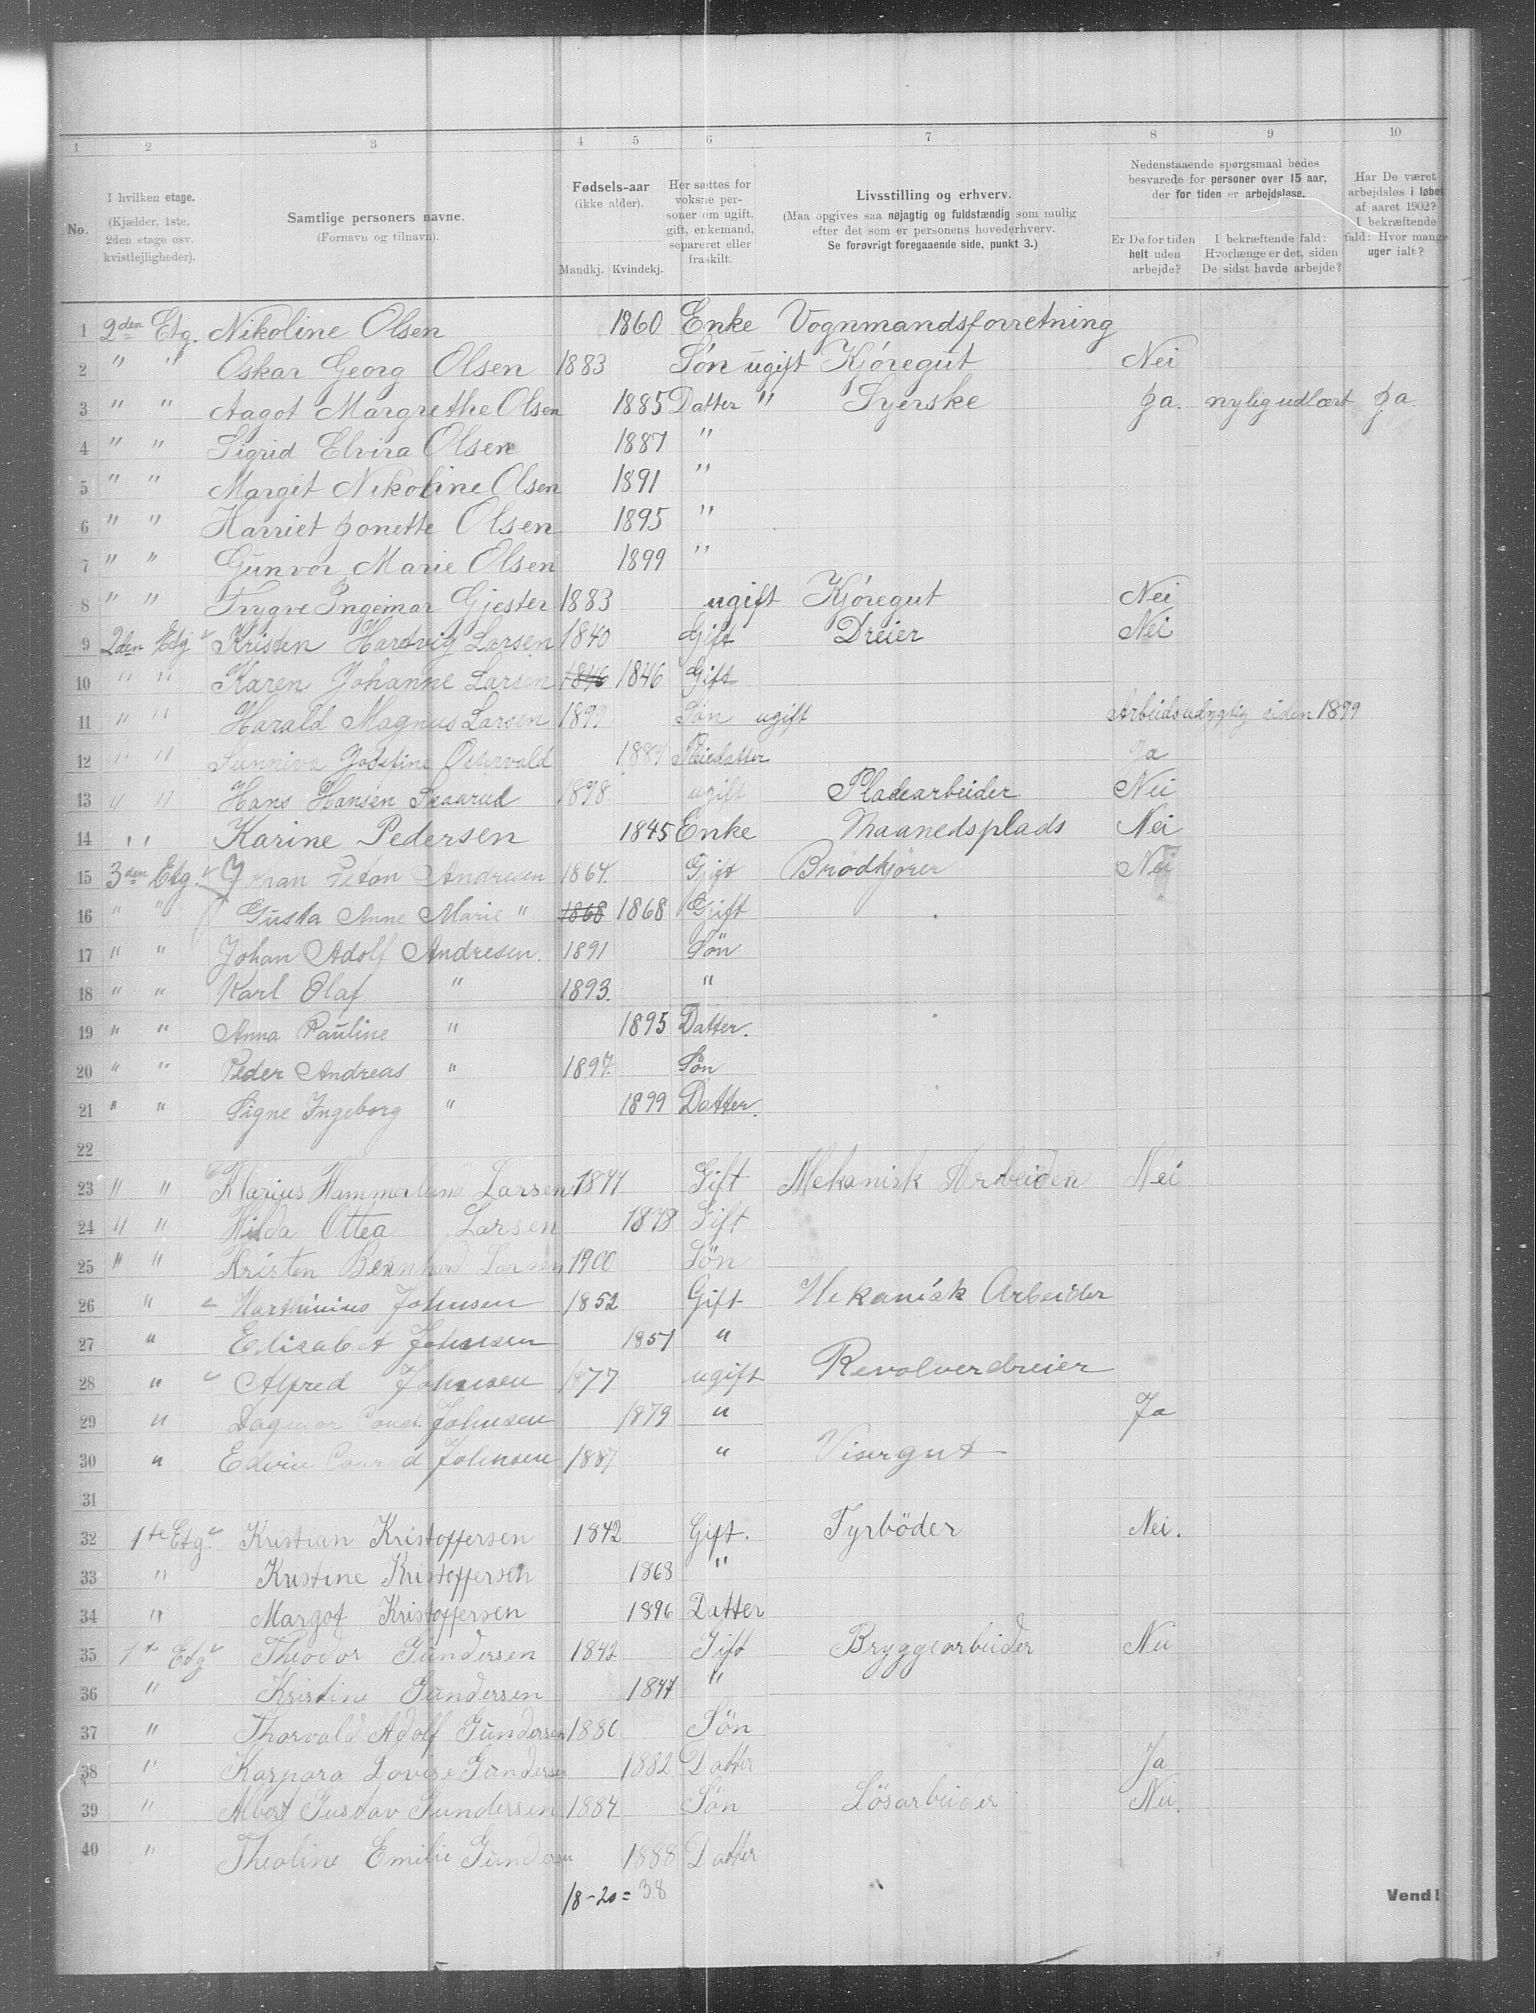 1 2 3 4 5 6 7 8 9 10
No.
I hvilken etage.
(Kjælder, 1ste, 2den etage osv. kvistlejligheder).
Samtlige personers navne.
(Fornavn og tilnavn).
Fødsels-aar
(ikke alder).
Mandkj. Kvindekj.
Her sættes for voksne personer om ugift, gift, enkemand, separeret eller fraskilt.
Livsstilling og erhverv.
(Maa opgives saa nøjagtig og fuldstændig som mulig
efter det som er personens hovederhverv.
Se forøvrigt foregaaende side, punkt 3.)
Nedenstaaende spørgsmaal bedes
besvarede for personer over 15 aar,
der for tiden er arbejdsløse.
Er De for tiden helt uden arbejde?
I bekræftende fald: Hvorlænge er det, siden De sidst havde arbejde?
Har De været arbejdsløs i løbet af aaret 1902? I bekræftende fald: Hvor mange uger ialt?
1 2den Etg. Nikoline Olsen 1860 Enke Vognmandsforretning
2 " " Oskar Georg Olsen 1883 Søn ugift Kjøregut Nei
3 " " Aagot Margrethe Olsen 1885 Datter " Syerske Ja. nylig udlært Ja
4 " " Sigrid Elvira Olsen 1887 "
5 " " Margit Nikoline Olsen 1891 "
6 " " Harriet Jonette Olsen 1895 "
7 " " Gunvor Marie Olsen 1899 "
8 " " Trygve Ingemar Gjester 1883 ugift Kjøregut Nei
9 2den Etg Kristen Hartvig Larsen 1840 Gift Dreier Nei
10 " " Karen Johanne Larsen 1846 1846 Gift
11 " " Harald Magnus Larsen Søn ugift Arbeidsudygtig siden 1899
12 " " Sunniva Josefine Ostervald Pleiedatter Ja
13 " " Hans Hansen Skaarud 1898 ugift Pladearbeider Nei
14 " " Karine Pedersen 1845 Enke Maanedsplads Nei
15 3den Etg. Johan Andresen 1867. Gift Brødkjører Nei
16 " " Gusta Anne Marie " 1868 1868 Gift
17 " " Johan Adolf Andresen. 1891 Søn
18 " " Karl Olaf " 1893. "
19 " " Anna Pauline " 1895 Datter.
20 " " Peder Andreas " 1897. Søn
21 " " Signe Ingeborg " 1899 Datter.
22
23 " " Klarius Hammerlund Larsen 1877 Gift Mekanisk Arbeiden Nei
24 " " Hilda Ottea Larsen 1878 Gift
25 " " Kristen Bernhard Larsen 1900 Søn
26 " Marthinius Johnsen 1852 Gift Mekanisk Arbeider
27 " Elisabet Johnsen 1851 "
28 " Alfred Johnsen 1877 ugift Revolverdreier
29 " Dagmar Const. Johnsen 1879 " Ja
30 " Edvin Conrad Johnsen 1887 " Visergut
31
32 1te Etg. Kristian Kristoffersen 1842 Gift. Fyrbøder Nei.
33 " Kristine Kristoffersen 1868 "
34 " Margot Kristoffersen 1896 Datter
35 1te Etg Theodor Gundersen 1842 Gift Bryggearbeider Nei
36 " Kristine Gundersen 1847 "
37 " Thorvald Adolf Gundersen 1880 Søn
38 " Kaspara Lovise Gundersen 1882 Datter Ja
39 " Albert Gustav Gundersen 1884 Søn Løsarbeider Nei.
40 " Theoline Emilie Gundersen 1888 Datter
18-20=38
Vend!